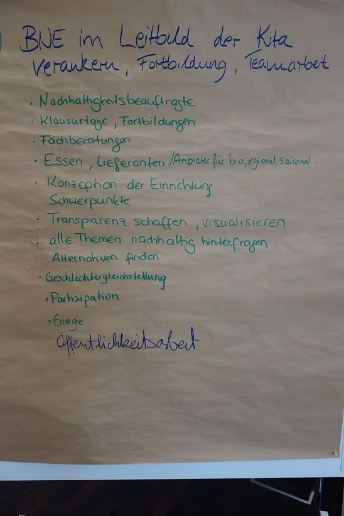 BNE im Leitbild der Kita
verankern, Fortbildung, Teamarbeit
· Nachhaltigkeitsbeauftragte
· Klausurtage, Fortbildungen
· Fachberatungen
· Essen, Lieferanten/Anbieter für bio, regional, saisonal
· Konzeption der Einrichtung
Schwerpunkte
· Transparenz schaffen, visualisieren
· alle Themen nachhaltig hinterfragen
Alternativen finden
· Geschlechtergleichstellung
· Partizipation
· Energie
· Öffentlichkeitsarbeit